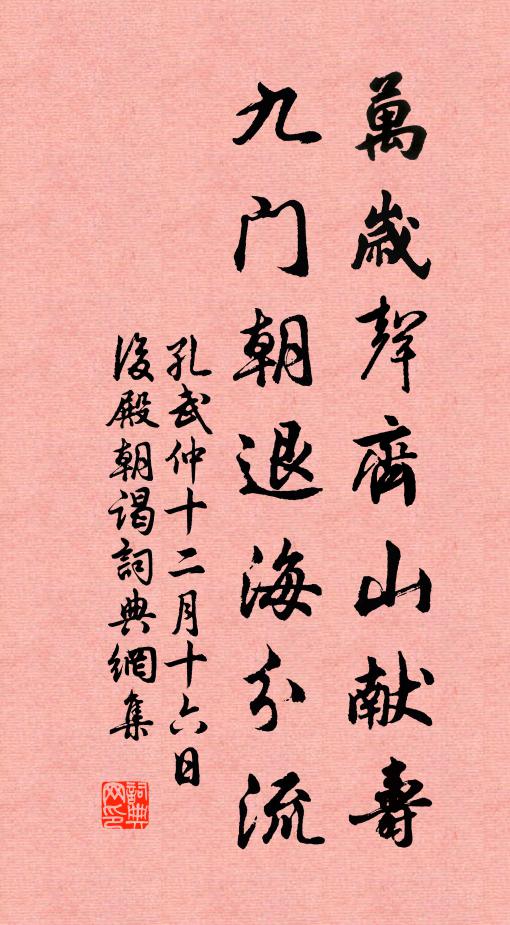 萬歲聲齊山献壽
九门朝退海分流
孔武仲十二月十六日
後殿朝谒詞典網集
詞典
网印